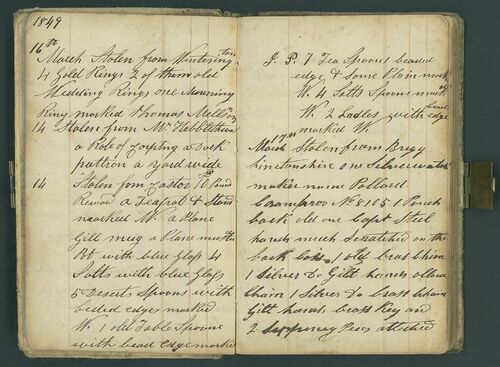 1849
16th
March Stolen from Winterington
4 Gold Rings 2 of them old
Wedding Rings one Mourning
Ring marked Thomas
14 Stolen from Mr
a Role of a Dark
pattron a Yard wide
14 Stolen from Castor 10 Pound
Reward a Teapot & Stand
marked W. a Plane
Gilt mug a Plane
Pot with blue Glass 4
Salts with blue Glass
5 Deserts Spoons with
beded edges marked
W. 1 old Table Spoone
with bead Edge marked
J. P. 7 Tea Spoons beaded
edge & Some Plain mark
W. 4 Salts Spoons mark
W. 2 Ladles with bead edge
marked W.
17th
March Stolen from Brigg
one Silver watch
maker name Pollard
No 8105 1 Pinch
back old one Capt Steel
hands much Scratched on the
back 1 old brass chain
1 Silver Do Gilt hands
Chain 1 Silver Do brass chain
Gilt hands brass Key and
2 Peces attached